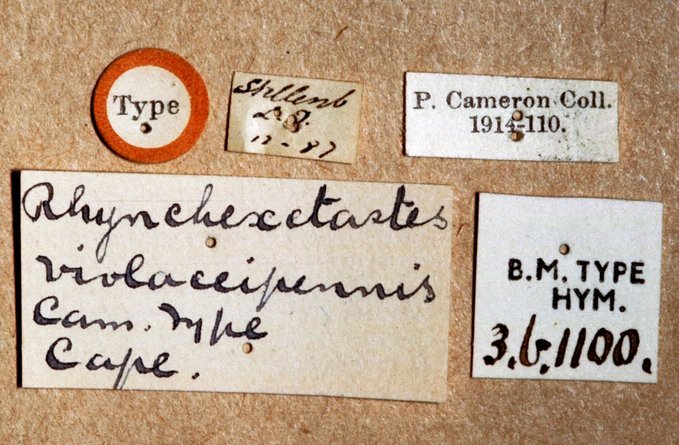 Type
Stellenb
17-87
P. Cameron Coll.
1914-110.
Rhynchexetastes
violaceipennis
Cam. Type
Cape.
B.M. TYPE
HYM.
3.b.1100.